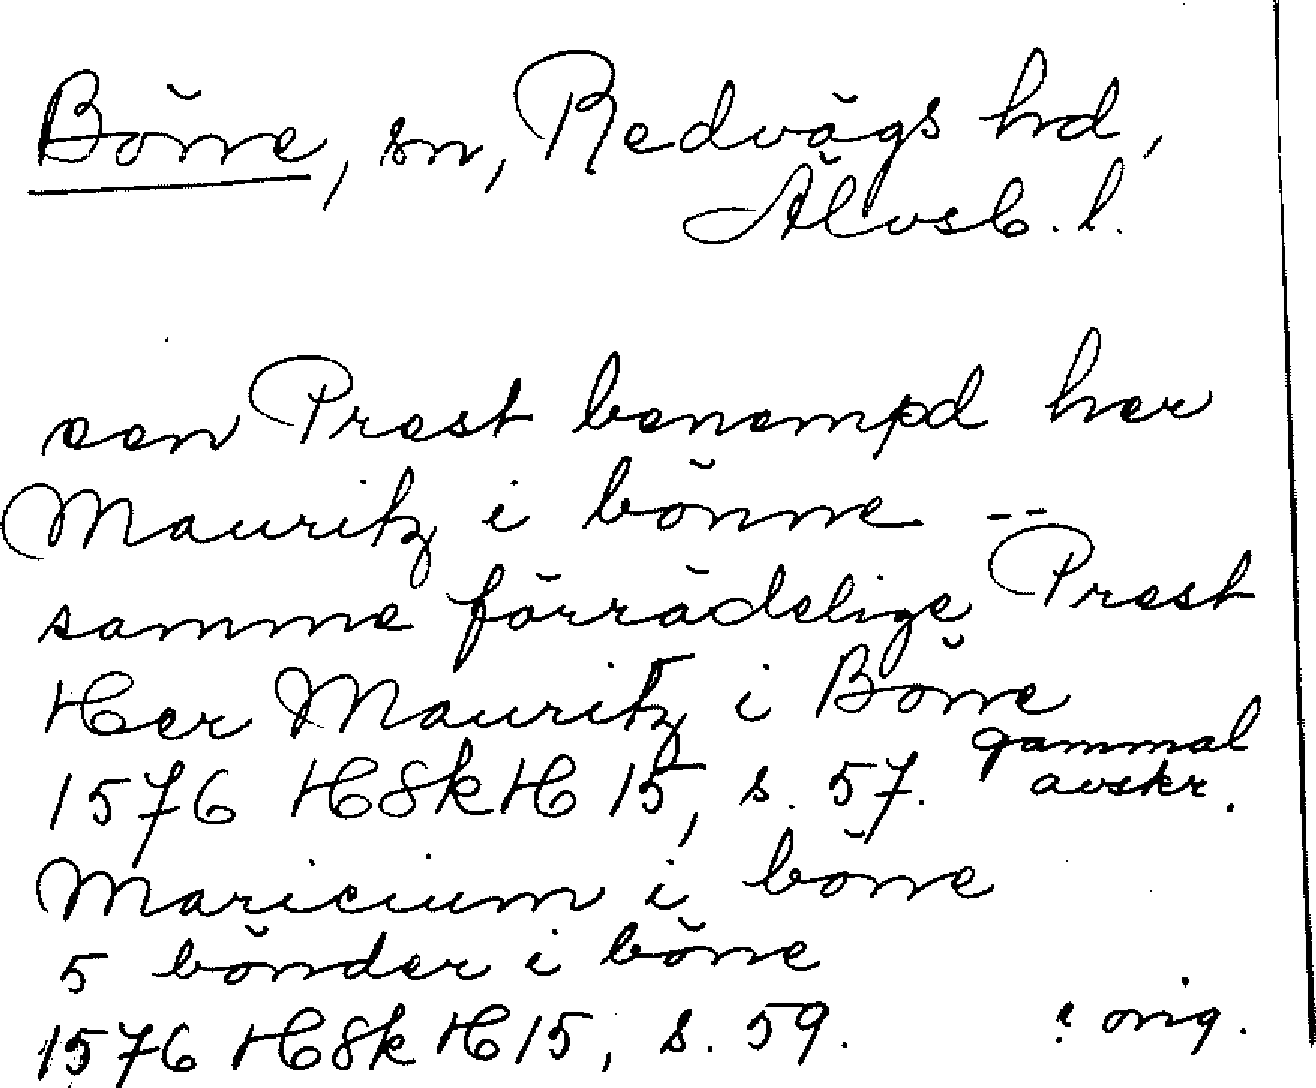 Böne, sn, Redvägs hd,
Älvsb. l.
een Prest benempd her
Mauritz i bönne --
samme förrädelige Prest
Her Mauritz i Böne
1576 HSkH 15, s. 57. gammal
avskr.
Maricium i böne
5 bönder i böne
1576 HSkH 15, s. 59. ? orig.